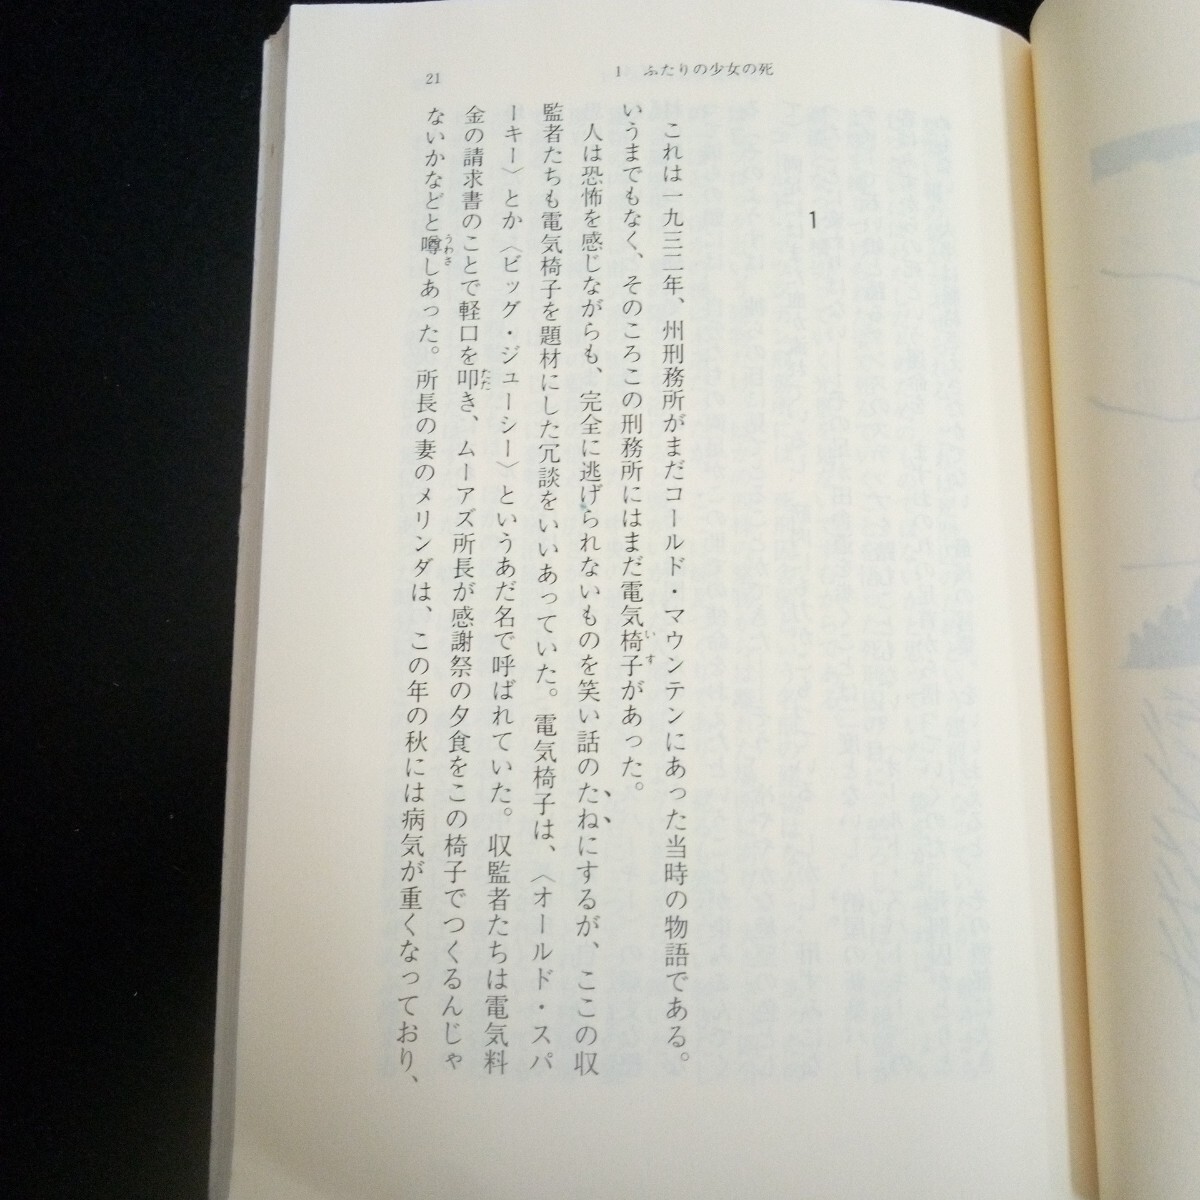 21
1 ふたりの少女の死
1
これは一九三二年、州刑務所がまだコールド・マウンテンにあった当時の物語である。
いうまでもなく、そのころこの刑務所にはまだ電気椅子があった。
人は恐怖を感じながらも、完全に逃げられないものを笑い話のたねにするが、ここの収
監者たちも電気椅子を題材にした冗談をいいあっていた。電気椅子は、〈オールド・スパ
ーキー〉とか〈ビッグ・ジューシー〉というあだ名で呼ばれていた。収監者たちは電気料
金の請求書のことで軽口を叩き、ムーアズ所長が感謝祭の夕食をこの椅子でつくるんじゃ
ないかなどと噂しあった。所長の妻のメリンダは、この年の秋には病気が重くなっており、